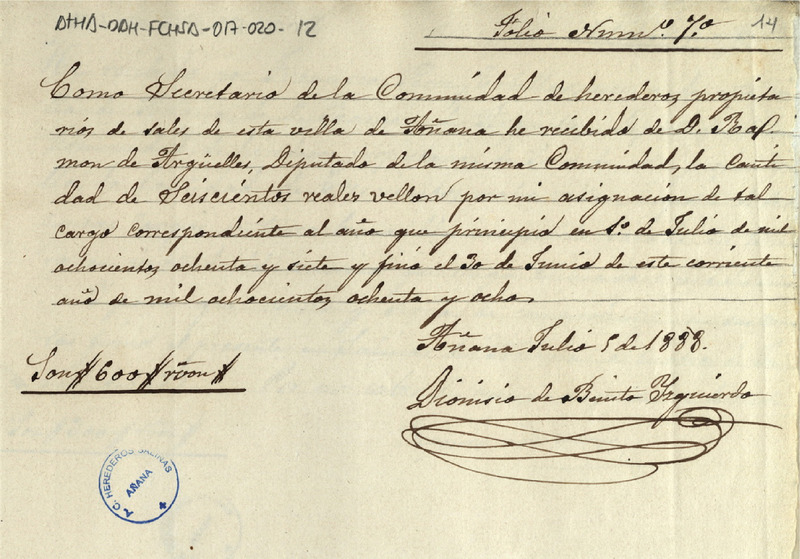 ATHA-DAH-FCHSA-017-020-12
14
Folio Num.º 7.º
Como Secretario de la Comunidad de herederos propieta
rios de sales de esta villa de Añana he recibido de D. Ra
mon de Argüelles, Diputado de la misma Comunidad, la canti
dad de Seiscientos reales vellon por mi asignacion de tal
cargo correspondiente al año que principió en 1.º de Julio de mil
ochocientos ochenta y siete y finó el 30 de Junio de este corriente
año de mil ochocientos ochenta y ocho.
Añana Julio 5 de 1888.
Son 600 rvon
Dionisio de Benito Yzquierdo
A. C. HEREDEROS SALINAS
AÑANA